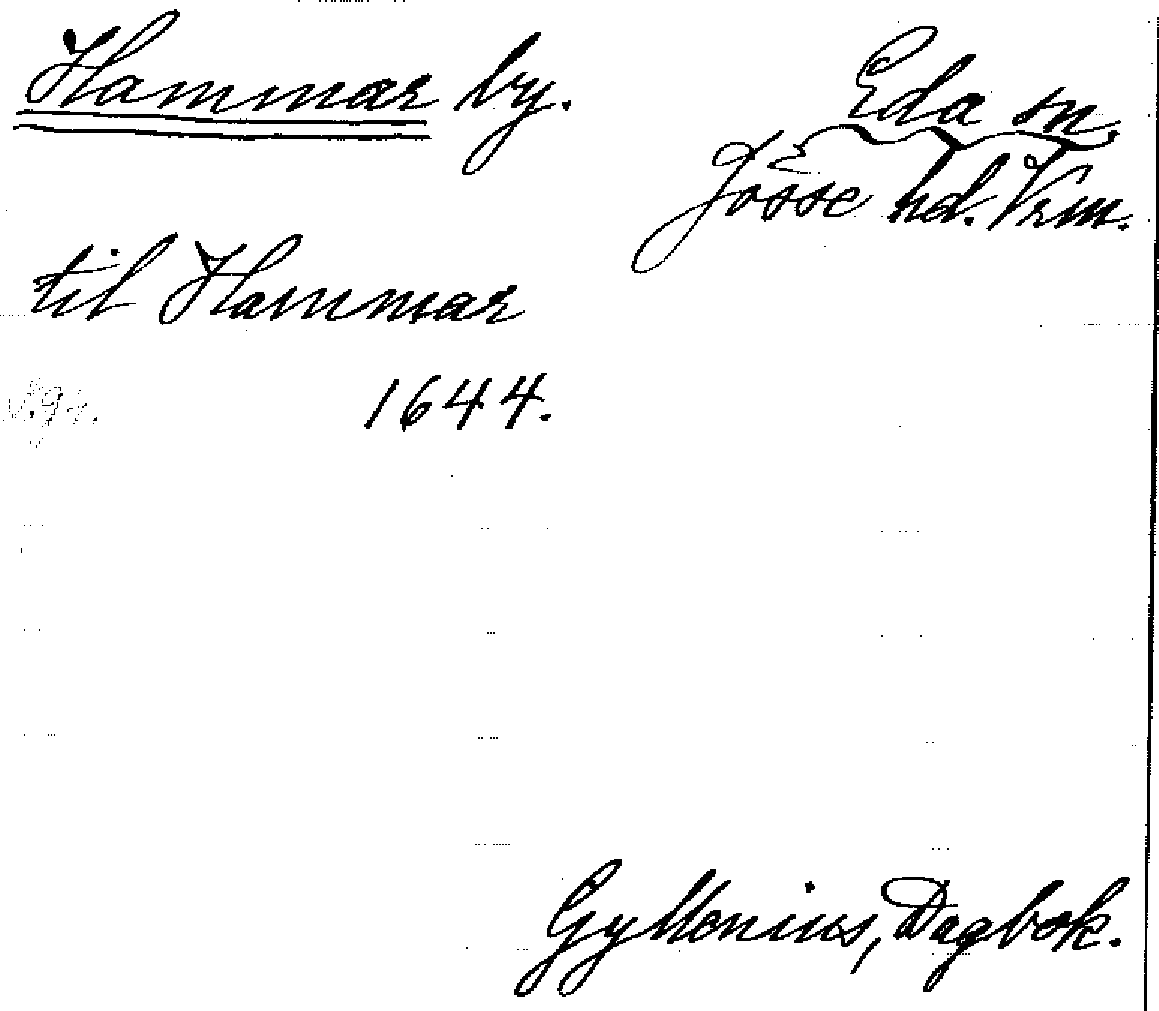 Hammar by.
Eda sn,
Jösse hd. Vrm.
til Hammar
1644.
Gyllenius, Dagbok.